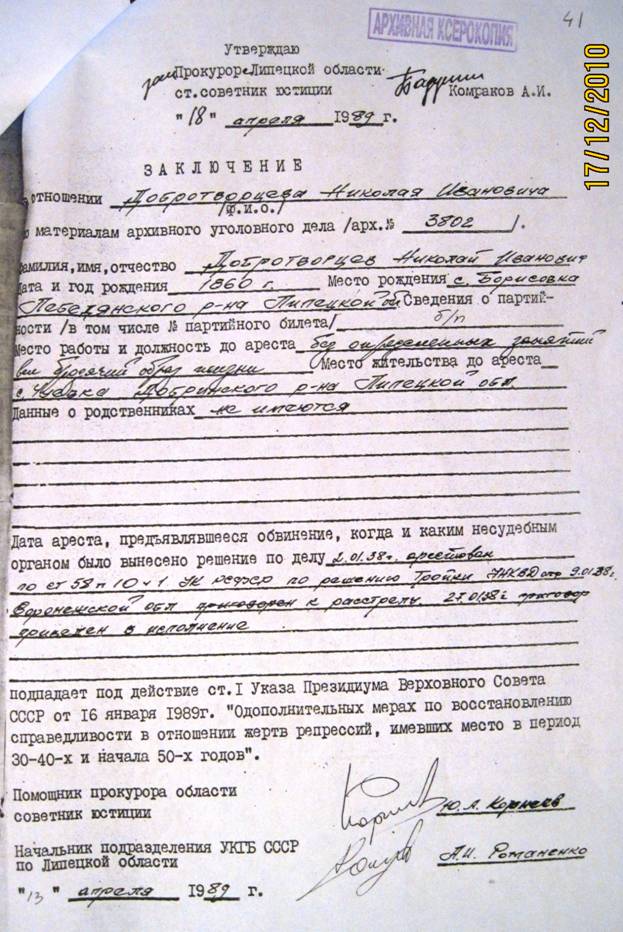 АРХИВНАЯ КСЕРОКОПИЯ
41
17/12/2010
Утверждаю
зам Прокурор Липецкой области
ст.советник юстиции Комраков А.И.
"18" апреля 1989 г.
ЗАКЛЮЧЕНИЕ
отношении Добротворцева Николая Ивановича
/Ф.И.О./
материалам архивного уголовного дела /арх.№ 3802 /.
фамилия,имя,отчество Добротворцев Николай Иванович
Дата и год рождения 1860 г. Место рождения с. Борисовка
Лебедянского р-на Липецкой обл Сведения о партий-
ности /в том числе № партийного билета/ б/п
Место работы и должность до ареста без определенных занятий
вел бродячий образ жизни Место жительства до ареста
с. Чуевка Добринского р-на Липецкой обл.
Данные о родственниках не имеются
Дата ареста, предъявлявшееся обвинение, когда и каким несудебным
органом было вынесено решение по делу 2.01.38г. арестован
по ст 58 п 10 ч 1 УК РСФСР по решению Тройки УНКВД от 9.01.38г.
Воронежской обл приговорен к расстрелу. 27.01.38г приговор
приведен в исполнение
подпадает под действие ст.I Указа Президиума Верховного Совета
СССР от 16 января 1989г. "Одополнительных мерах по восстановлению
справедливости в отношении жертв репрессий, имевших место в период
30-40-х и начала 50-х годов".
Помощник прокурора области
советник юстиции Ю.А. Корнеев
Начальник подразделения УКГБ СССР
по Липецкой области А.И. Романенко
"13" апреля 1989 г.